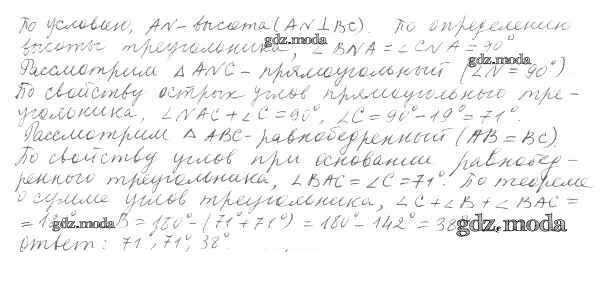 По условию, AN - высота (AN⊥BC). По определению
высоты треугольника, ∠BNA = ∠CNA = 90°
gdz.moda
gdz.moda
Рассмотрим △ANC - прямоугольный (∠N = 90°)
По свойству острых углов прямоугольного тре-
угольника, ∠NAC + ∠C = 90°, ∠C = 90° - 19° = 71°.
Рассмотрим △ABC - равнобедренный (AB = BC).
По свойству углов при основании равнобед-
ренного треугольника, ∠BAC = ∠C = 71°. По теореме
о сумме углов треугольника, ∠C + ∠B + ∠BAC =
= B = 180° - (71° + 71°) = 180° - 142° = 38°
gdz.moda
gdz.moda
ответ: 71°, 71°, 38°.